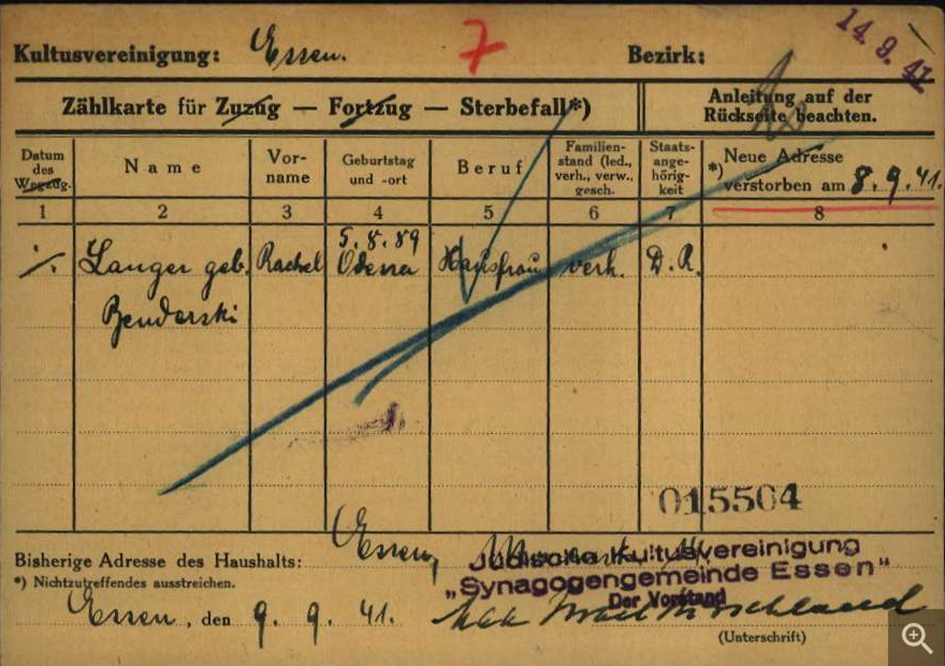 14. 9. 41
Kultusvereinigung: Essen. 7 Bezirk:
Zählkarte für Zuzug — Fortzug — Sterbefall*)
Anleitung auf der
Rückseite beachten.
Datum
des
Wegzug.
Name
Vor-
name
Geburtstag
und -ort
Beruf
Familien-
stand (led.,
verh., verw.,
gesch.
Staats-
ange-
hörig-
keit
*) Neue Adresse
verstorben am 8. 9. 41.
1 2 3 4 5 6 7 8
5. 8. 89
Langer geb. Rachel Odessa Hausfrau verh. D. R.
Benderski
015504
Bisherige Adresse des Haushalts: Essen,
*) Nichtzutreffendes ausstreichen.
Jüdische Kultusvereinigung
„Synagogengemeinde Essen“
Der Vorstand
Essen, den 9. 9. 41.
(Unterschrift)